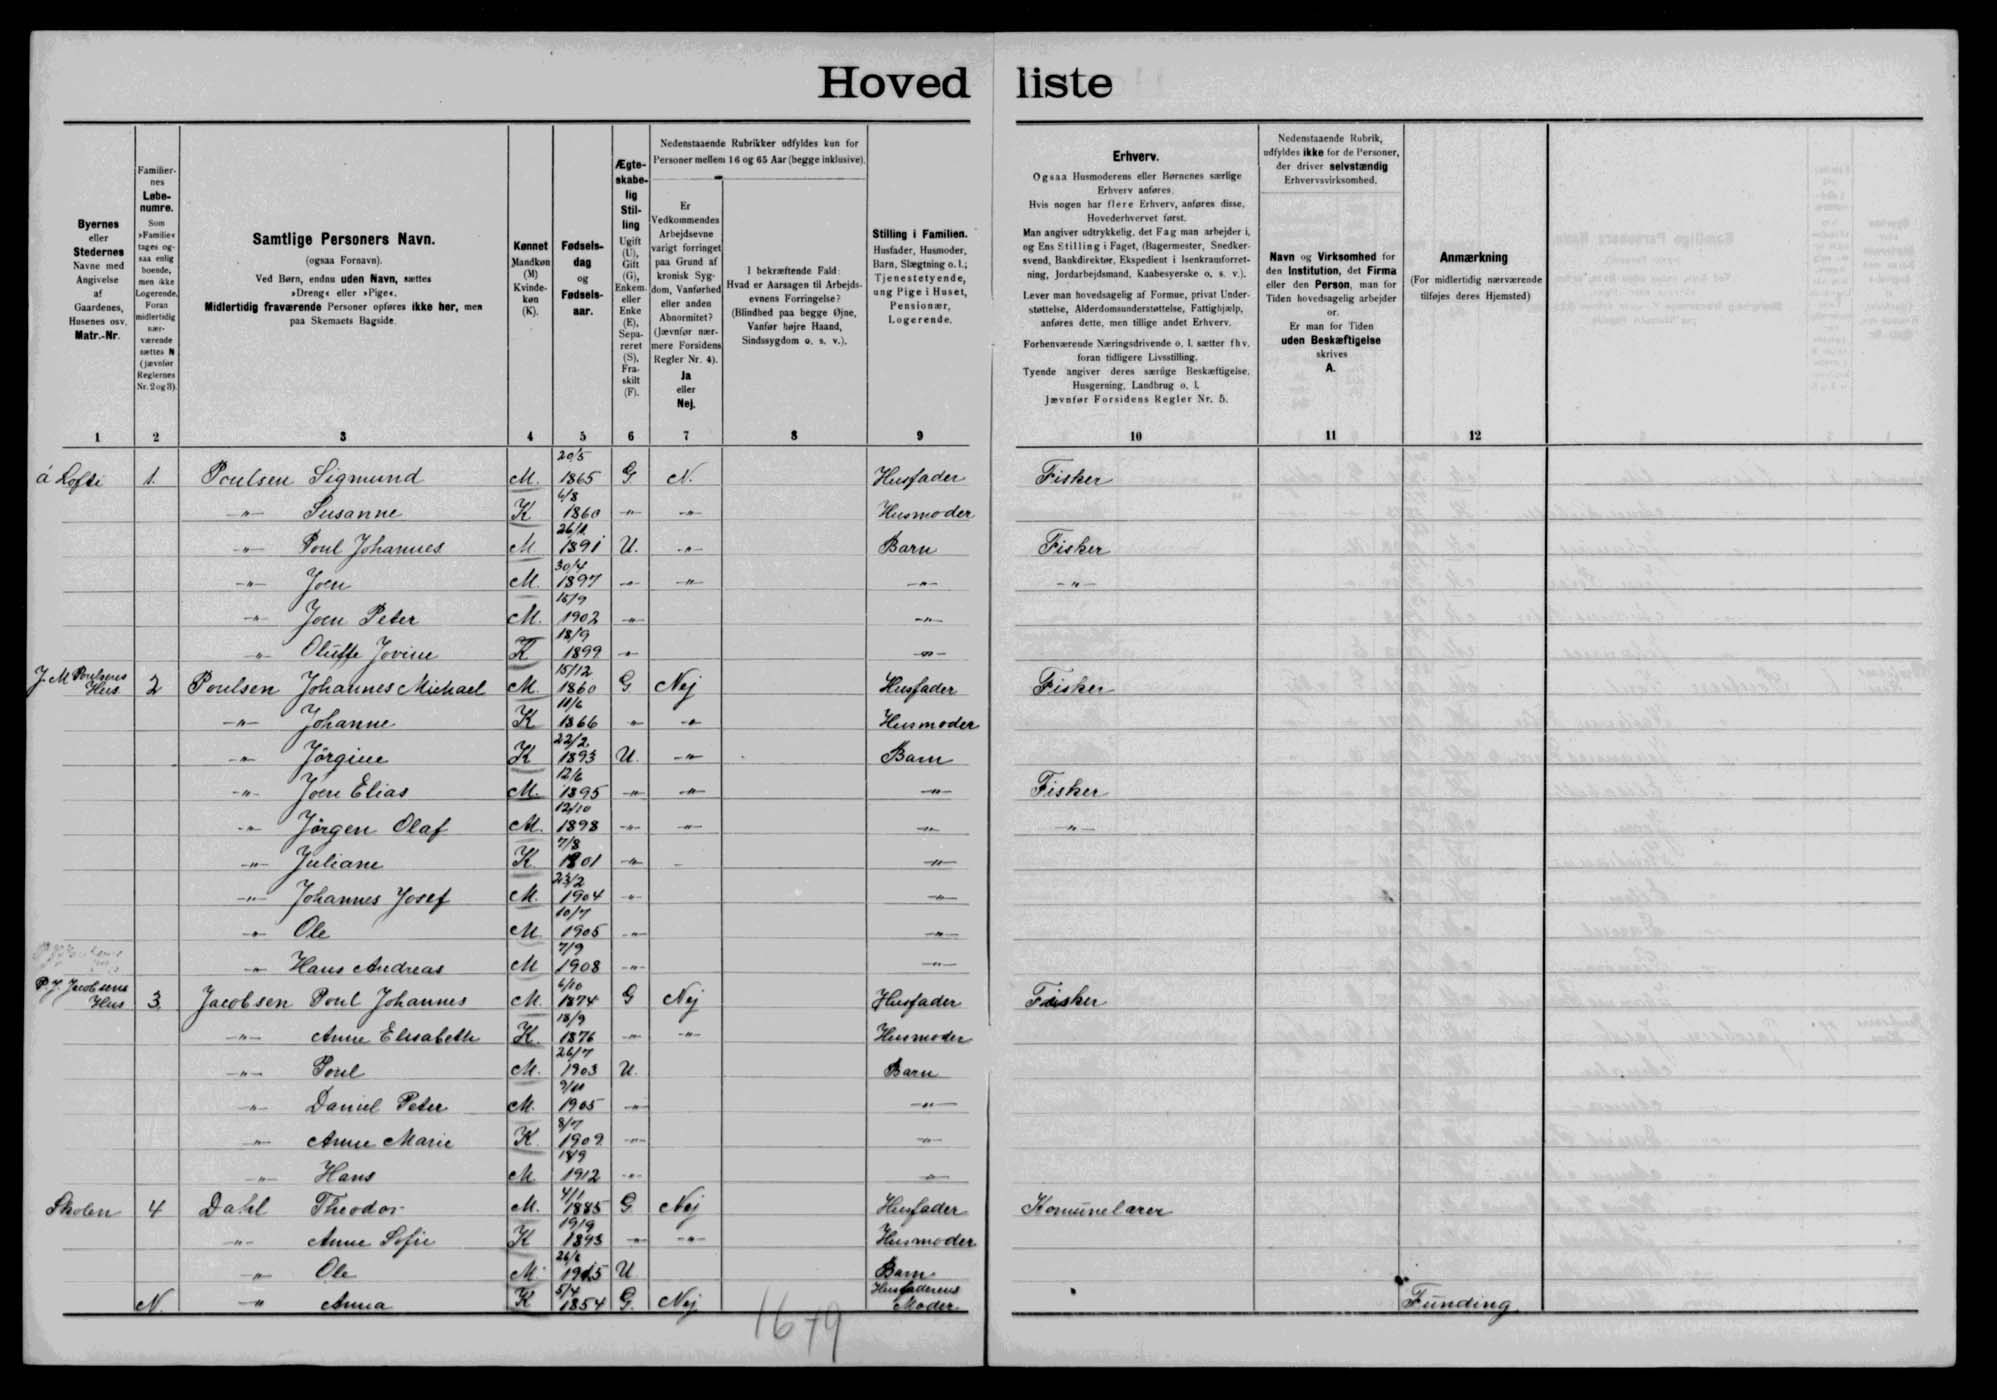 Hoved liste
Byernes
eller
Stedernes
Navne med
Angivelse
af
Gaardenes,
Husenes osv.
Matr.-Nr.
Familier-
nes
Løbe-
numre.
Som
»Familie«
tages og-
saa enlig
boende,
men ikke
Logerende.
Foran
midlertidig
nær-
værende
sættes N
(jævnfør
Reglernes
Nr. 2 og 3).
Samtlige Personers Navn.
(ogsaa Fornavn).
Ved Børn, endnu uden Navn, sættes
»Dreng« eller »Pige«.
Midlertidig fraværende Personer opføres ikke her, men
paa Skemaets Bagside.
Kønnet
Mandkøn
(M)
Kvinde-
køn
(K).
Fødsels-
dag
og
Fødsels-
aar.
Ægte-
skabe-
lig
Stil-
ling
Ugift
(U),
Gift
(G),
Enkem.
eller
Enke
(E),
Sepa-
reret
(S),
Fra-
skilt
(F).
Nedenstaaende Rubrikker udfyldes kun for
Personer mellem 16 og 65 Aar (begge inklusive).
Er
Vedkommendes
Arbejdsevne
varigt forringet
paa Grund af
kronisk Syg-
dom, Vanførhed
eller anden
Abnormitet?
(Jævnfør nær-
mere Forsidens
Regler Nr. 4).
Ja
eller
Nej.
I bekræftende Fald:
Hvad er Aarsagen til Arbejds-
evnens Forringelse?
(Blindhed paa begge Øjne,
Vanfør højre Haand,
Sindssygdom o. s. v.).
Stilling i Familien.
Husfader, Husmoder,
Barn, Slægtning o. l.;
Tjenestetyende,
ung Pige i Huset,
Pensionær,
Logerende.
Erhverv.
Ogsaa Husmoderens eller Børnenes særlige
Erhverv anføres.
Hvis nogen har flere Erhverv, anføres disse,
Hovederhvervet først.
Man angiver udtrykkelig, det Fag man arbejder i,
og Ens Stilling i Faget, (Bagermester, Snedker-
svend, Bankdirektør, Ekspedient i Isenkramforret-
ning, Jordarbejdsmand, Kaabesyerske o. s. v.).
Lever man hovedsagelig af Formue, privat Under-
støttelse, Alderdomsunderstøttelse, Fattighjælp,
anføres dette, men tillige andet Erhverv.
Forhenværende Næringsdrivende o. l. sætter fhv.
foran tidligere Livsstilling.
Tyende angiver deres særlige Beskæftigelse,
Husgerning, Landbrug o. l.
Jævnfør Forsidens Regler Nr. 5.
Nedenstaaende Rubrik,
udfyldes ikke for de Personer,
der driver selvstændig
Erhvervsvirksomhed.
Navn og Virksomhed for
den Institution, det Firma
eller den Person, man for
Tiden hovedsagelig arbejder
for.
Er man for Tiden
uden Beskæftigelse
skrives
A.
Anmærkning
(For midlertidig nærværende
tilføjes deres Hjemsted)
1 2 3 4 5 6 7 8 9 10 11 12
á Lofti 1. Poulsen Sigmund M. 20/5 1865 G N. Husfader Fisker
-"- Susanne K 6/8 1860 -"- -"- Husmoder
-"- Poul Johannes M 1891 U. -"- Barn Fisker
-"- Joen M. 30/4 1897 -"- -"- -"- -"-
-"- Joen Peter M. 15/9 1902 -"- -"-
-"- Oluffe Jovine K 18/9 1899 -"- -"-
J. M Poulsens Hus 2 Poulsen Johannes Michael M. 15/12 1860 G Nej Husfader Fisker
-"- Johanne K 11/6 1866 -"- -"- Husmoder
-"- Jörgine K 22/2 1893 U. -"- Barn
-"- Joen Elias M. 12/6 1895 -"- -"- -"- Fisker
-"- Jörgen Olaf M. 12/10 1898 -"- -"- -"- -"-
-"- Juliane K 7/8 1901 -"- - -"-
-"- Johannes Josef M. 23/2 1904 -"- -"-
-"- Ole M 10/7 1905 -"- -"-
-"- Hans Andreas M 7/9 1908 -"- -"-
P. J. Jacobsens Hus 3 Jacobsen Poul Johannes M. 6/10 1874 G Nej Husfader Fisker
-"- Anne Elisabeth K. 18/9 1876 -"- -"- Husmoder
-"- Poul M. 26/7 1903 U. Barn
-"- Daniel Peter M. 1905 -"- -"-
-"- Anne Marie K 8/7 1909 -"- -"-
-"- Hans M 1912 -"- -"-
Skolen 4 Dahl Theodor M. 4/1 1885 G Nej Husfader Komunelærer
-"- Anne Sofie K 19/9 1893 -"- -"- Husmoder
-"- Ole M. 1915 U Barn
N. -"- Anna K 5/4 1854 G. Nej Husfaderens Moder Funding
16 79